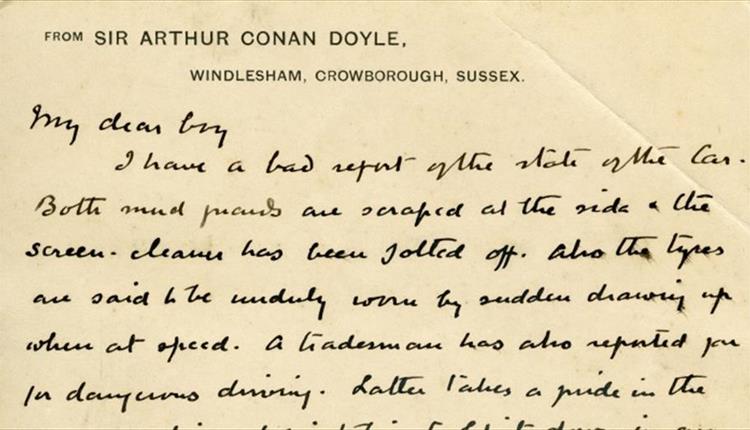 FROM SIR ARTHUR CONAN DOYLE,
WINDLESHAM, CROWBOROUGH, SUSSEX.
My dear boy
I have a bad report of the state of the Car.
Both mud guards are scraped at the side & the
screen-cleaner has been jolted off. Also the tyres
are said to be unduly worn by sudden drawing up
when at speed. A tradesman has also reported you
for dangerous driving. Latter takes a pride in the